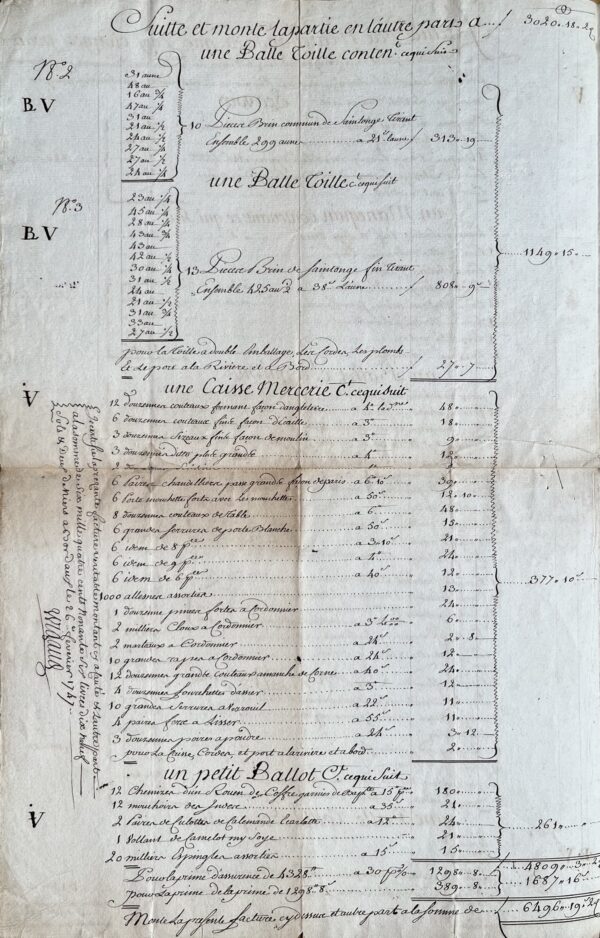 Suitte et monte la partie en l'autre part a 3020..18..2
une Balle Toille conten.t ce qui suit
N.o 2
B.V
31 aune
48 au
16 au 3/4
47 au 1/4
31 au
21 au 1/2
24 au 1/2
27 au 3/4
27 au 1/2
24 au 1/4
10 Pieces Brin commun de Saintonge Tirant
Ensemble 299 aune a 21s laune 313..19
une Balle Toille ce qui suit
N.o 3
B.V
23 au 1/4
45 au 1/4
28 au 1/4
43 au 3/4
43 au
42 au 1/2
30 au 1/4
31 au 1/2
24 au
21 au 1/2
31 au 3/4
33 au
27 au 1/2
13 Pieces Brin de Saintonge fin Tirant
Ensemble 425 au a 38s L'aune 808..9
1149..15
pour la Toille a double Emballage, Les Cordes, Les plombs
& Le port a la Riviere et a Bord 27..7
une Caisse Mercerie C.t ce qui suit
V
12 douzennes couteaux fermant façon d'angleterre 48
6 douzennes couteaux fins façon d'écaille a 3 18
3 douzennes Sizeaux fins façon de moulin a 3 9
3 douzennes ditto plus grande a 4 12
6 Paires chandelliers grande façon de paris 30
6 Porte mouchette forte avec les mouchettes a 50s 12..10
8 douzennes couteaux de table a 6 48
6 grandes serrures de porte Blanche a 50s 15
6 idem de 8 a 3..10s 21
6 idem de 9 a 4 24
6 idem de 6 a 40s 12
1000 allesnes assorties 13
1 douzenne pinces fortes a Cordonnier 24
2 milliers Cloux a Cordonnier 6
2 marteaux a Cordonnier a 24s 2..8
10 grandes rapes a Cordonnier a 24s 12
12 douzennes grands Couteaux a manche de Corne a 40s 24
4 douzennes fourchettes d'acier a 3 12
10 grandes Serrures a a 22s 11
4 paires force a Lisser a 55s 11
3 douzennes poires a poudre a 24s 3..12
pour La Caisse, Cordes, et port a la riviere et a bord 2
377..10
un petit Ballot C.t ce qui Suit
V
12 Chemises d'un Rouen de Coffre garnies de a 15 180
12 mouchoirs des Indes a 35s 21
2 Paires de Culottes de Calemande Ecarlatte a 12 24
1 Vollant de Camelot my Soye 21
20 milliers Epingles assorties a 15s 15
261
4809..3..2
Pour la prime d'assurance de 4328 a 30 p % 1298..8
pour La prime de la prime de 1298..8 389..8
1687..16
Monte La presente facture cy dessus et autre part a la somme de 6496..19..2
la presente facture veritable montant cy a costé et d'autre part
a la somme de Six mille quatre cents Nonante Six livres dix neuf
Sols & Deux deniers a Bordeaux le 26 fevrier 1747